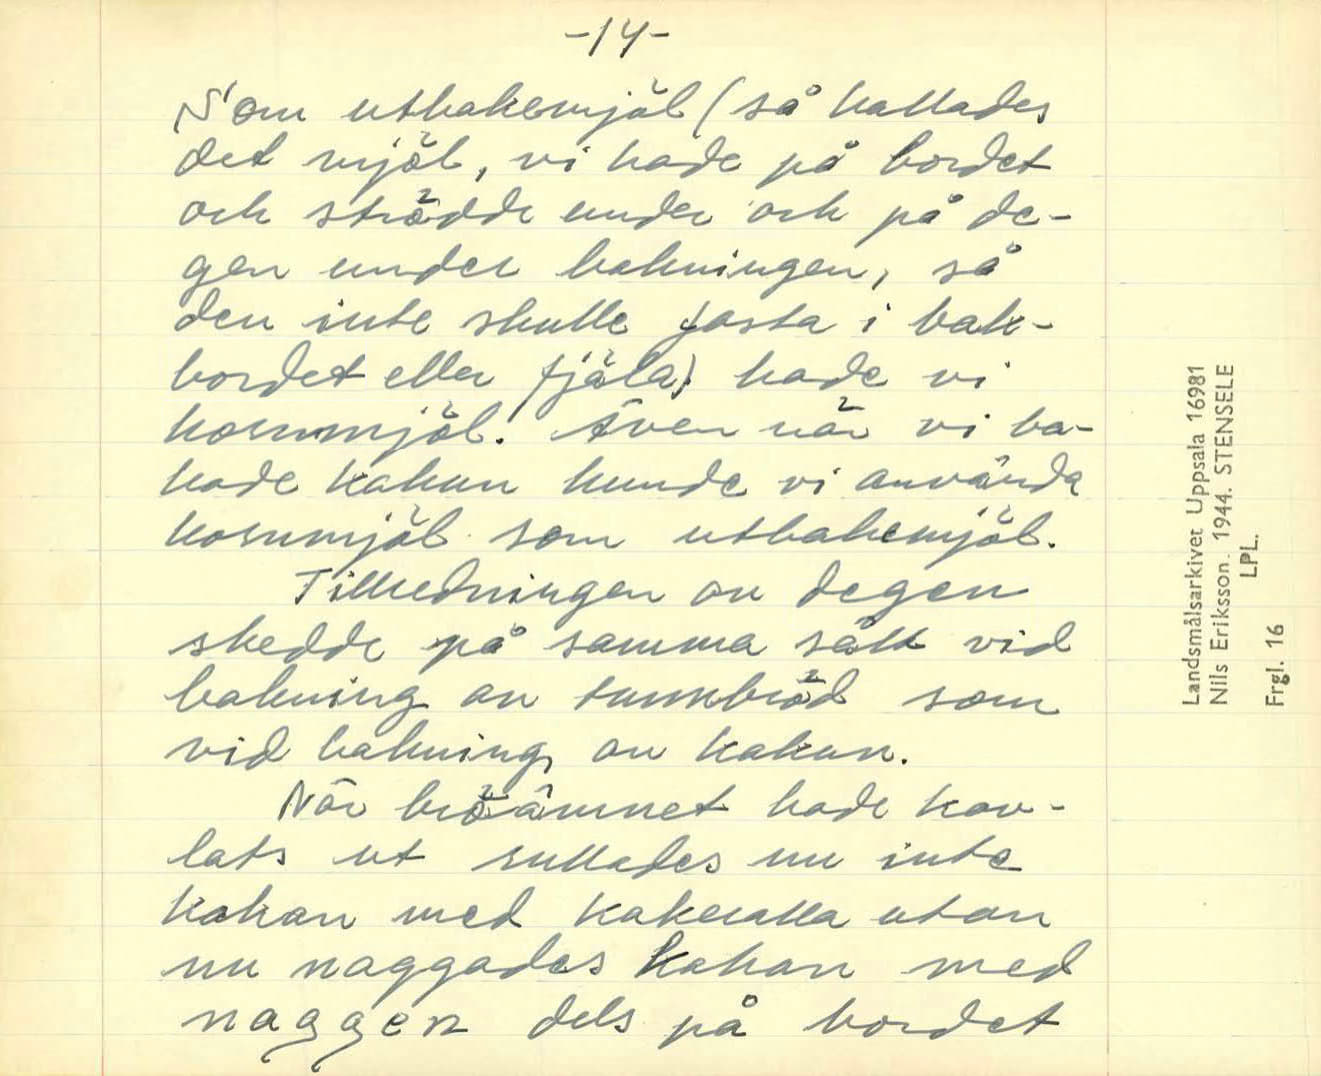 -14-
Som utbakemjöl (så kallades
det mjöl, vi hade på bordet
och strödde under och på de-
gen under bakningen, så
den inte skulle fasta i bak-
bordet eller fjäla) hade vi
kornmjöl. Även när vi ba-
kade kakun kunde vi använda
kornmjöl som utbakemjöl.
Tillredningen av degen
skedde på samma sätt vid
bakning av tunnbröd som
vid bakning av kakun.
När brödämnet hade kav-
lats ut rullades nu inte
kakan med kakerulla utan
nu naggades kakan med
naggen dels på bordet
Landsmålsarkivet Uppsala 16981
Nils Eriksson. 1944. STENSELE
LPL.
Frgl. 16